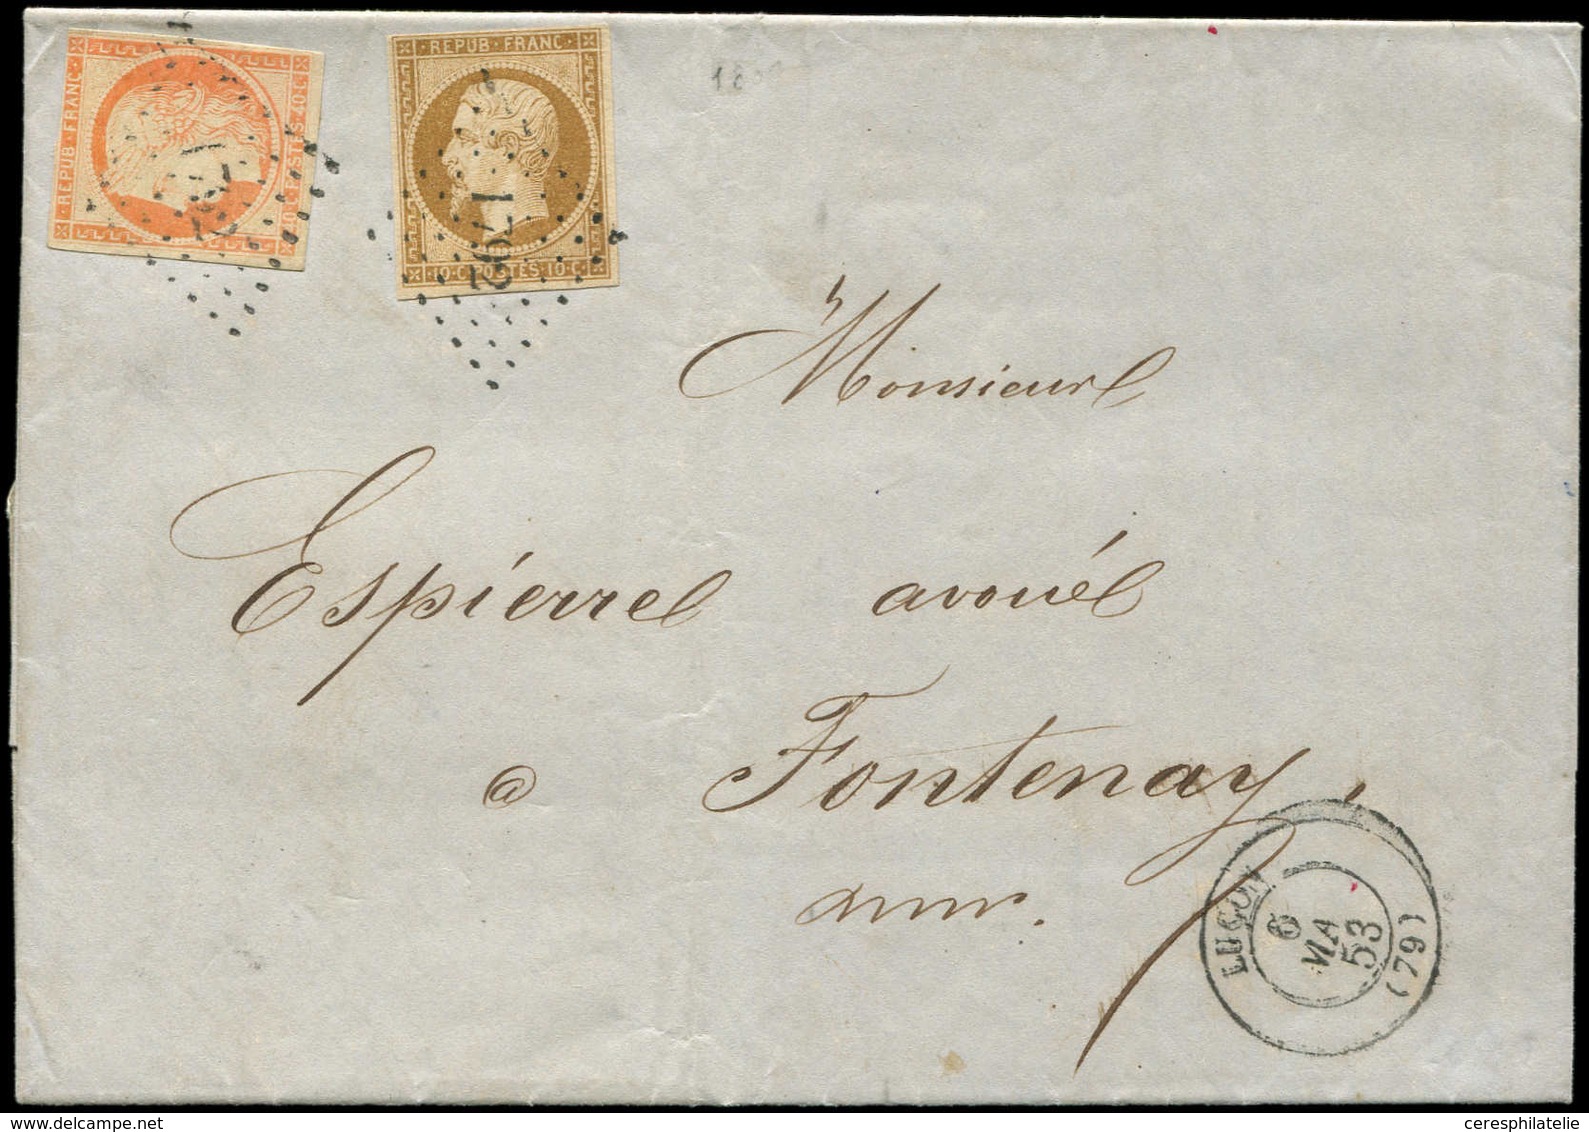 REPUB · FRANC ·
POSTES · 40 · C ·
1792
· REPUB · FRANC ·
1792
· 10 · C · POSTES · 10 · C ·
Monsieur
Espierre avoué
a Fontenay
LUÇON
6
MA
53
(79)
ceresphilatelie
delcampe.net